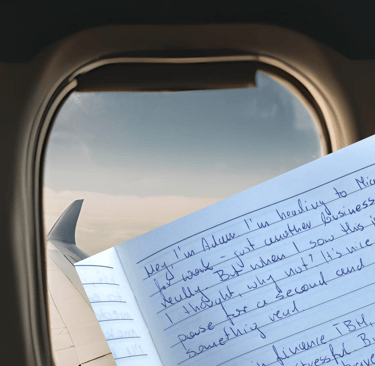 Hey, I'm Adam I'm heading to
for work - just another business
really. But when I saw this
I thought, why not? It's nice
pause for a second and
something real
in finance TBH,
stressful B